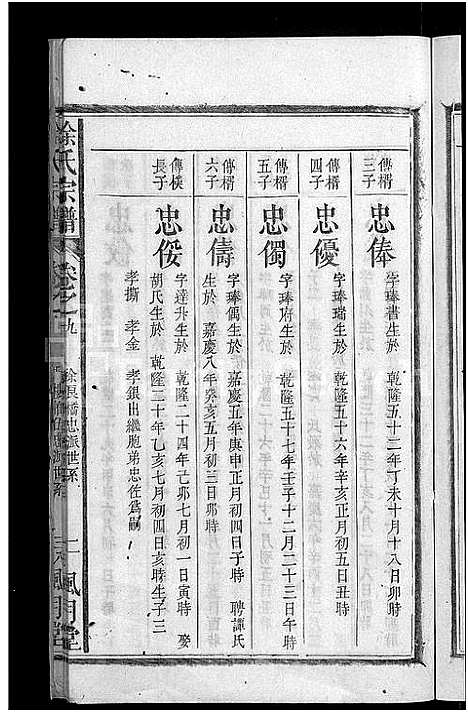 傳楈三子
忠俸
字琫書生於 乾隆五十二年丁未十月十八日卯時
傳楈四子
忠優
字琫瑞生於 乾隆五十六年辛亥正月初五日丑時
傳楈五子
忠僩
字琫府生於 乾隆五十七年壬子十二月二十三日午時
傳楈六子
忠儔
字琫偶生於 嘉慶五年庚申正月初四日子時 聘譚氏
生於 嘉慶八年癸亥五月初三日初子時
傳樸長子
忠俀
字達升生於 乾隆二十四年己卯七月初一日寅時 娶
胡氏生於 乾隆三十年乙亥七月初四日亥時生子三
孝撕 孝金 孝鎖出繼胞弟忠佐爲嗣
徐氏宗譜
卷之九
風月堂